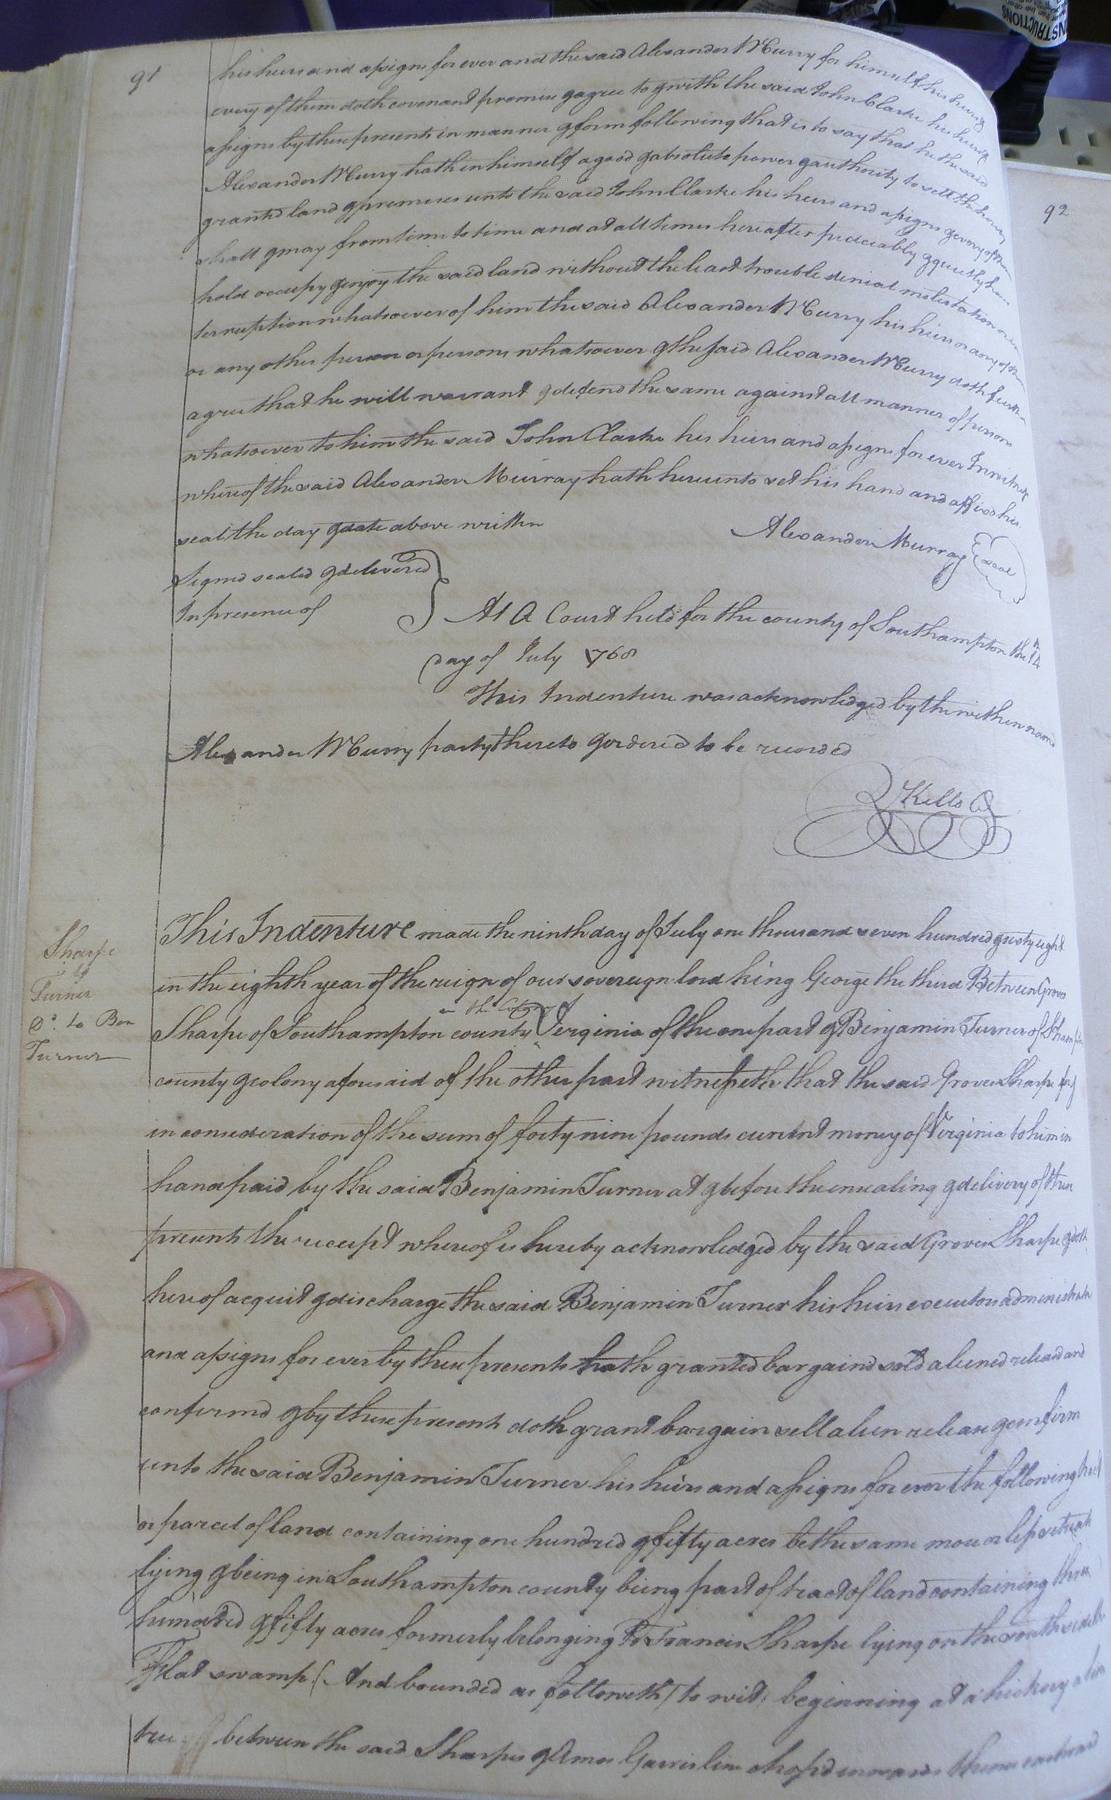 91
his heirs and assigns for ever and the said Alexander Murry for himself his heirs
every of them doth covenant promise & agree to & with the said John Clarke his heirs &
assigns by these presents in manner & form following that is to say that he the said
Alexander Murry hath in himself a good & absolute power & authority to sell the
granted land & premises unto the said John Clarke his heirs and assigns & every of them
shall & may from time to time and at all times hereafter peaceably & quietly have
hold occupy & enjoy the said land without the least trouble denial molestation or in
terruption whatsoever of him the said Alexander Murry his heirs or any of them
or any other person or persons whatsoever & the said Alexander Murry doth further
agree that he will warrant & defend the same against all manner of persons
whatsoever to him the said John Clarke his heirs and assigns for ever In witness
whereof the said Alexander Murray hath hereunto set his hand and affixd his
seal the day & date above written
Alexander Murray Seal
Signd sealed & delivered
In presence of
At A Court held for the county of Southampton the 14
day of July 1768
This Indenture was acknowledged by the within named
Alexander Murry party thereto & ordered to be recorded
R Kello C
92
Sharpe
to
Turner
Do. to Ben
Turner
This Indenture made the ninth day of July one thousand seven hundred & sixty eight
in the eighth year of the reign of our sovereign lord king George the third Between Groves
Sharpe of Southampton county in the Colony of Virginia of the one part & Benjamin Turner of
county & colony aforesaid of the other part witnesseth that the said Groves Sharpe for
in consideration of the sum of forty nine pounds current money of Virginia to him in
hand paid by the said Benjamin Turner at & before the ensealing & delivery of these
presents the receipt whereof is hereby acknowledged by the said Groves Sharpe & doth
hereof acquit & discharge the said Benjamin Turner his heirs executors administrators
and assigns for ever by these presents hath granted bargaind sold aliened releasd and
confirmd & by these present doth grant bargain sell alien release & confirm
unto the said Benjamin Turner his heirs and assigns for ever the following tract
or parcel of land containing one hundred & fifty acres be the same more or less situate
lying & being in Southampton county being part of tract of land containing three
hundred & fifty acres formerly belonging to Francis Sharpe lying on the south side
Flat swamp (And bounded as followeth) to wit: beginning at a hickory a line
tree between the said Sharpes & Amos Garris line chopd inwards thence eastward